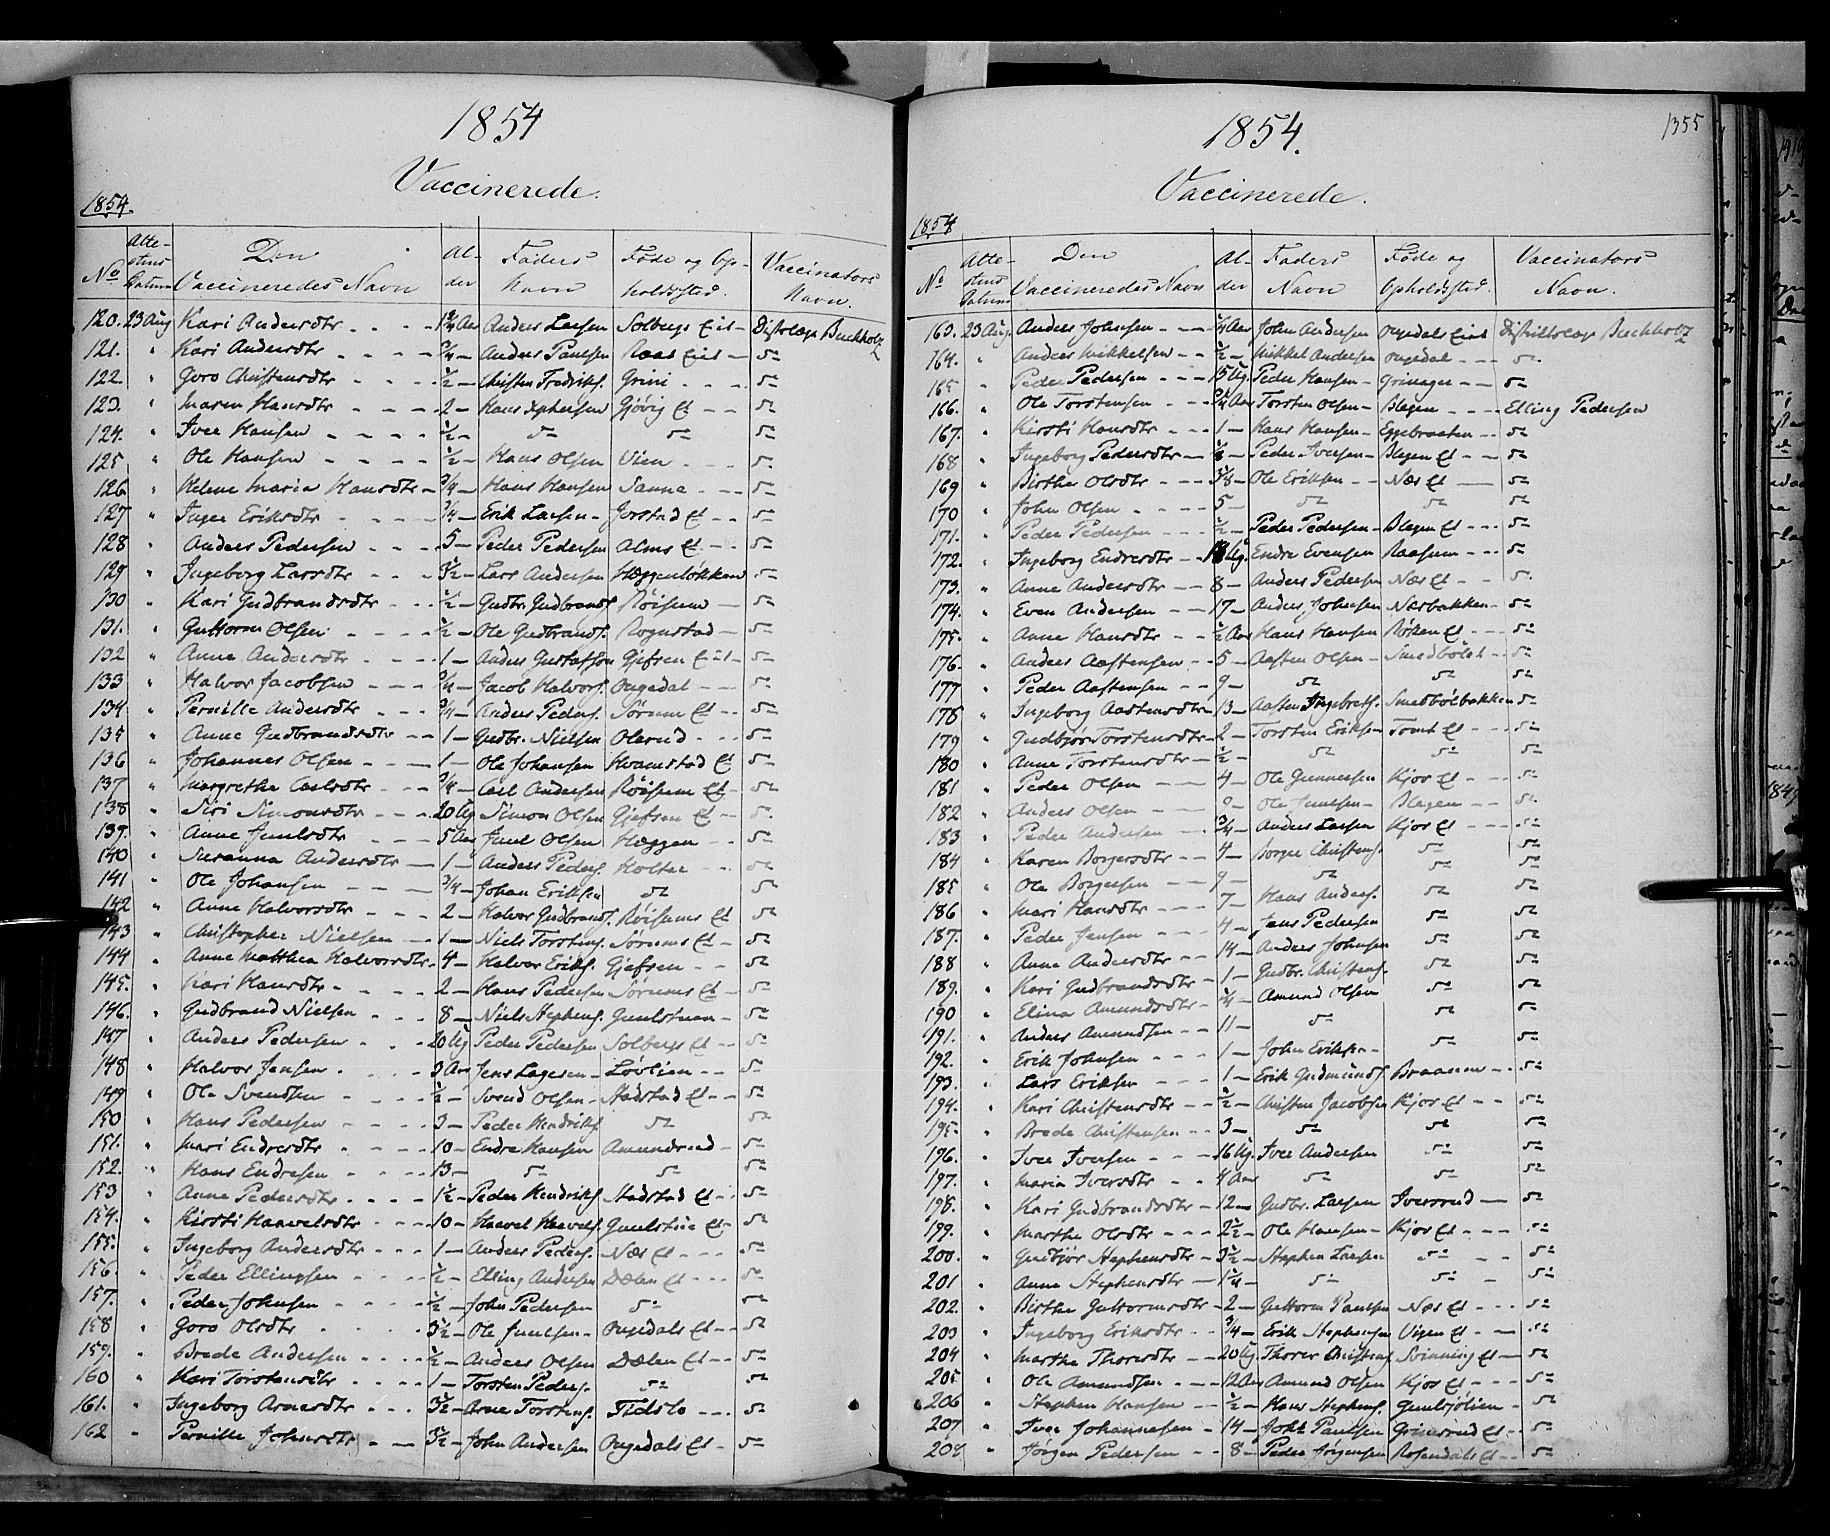 1854
Vaccinerede.
1854.
No Atte-stens Datum Den Vaccineredes Navn Al-der Faders Navn Føde og Op-holdssted. Vaccinators Navn.
120. 23 Aug Kari Andersdtr Aar Anders Larsen Solbergs Eie Buchholz
121. " Kari Andersdtr ¾ Anders Paulsen Raas Eie do
122. " Goro Christensdtr ½ Christen Fredriks. Grini do
123. " Maren Hansdtr 2 Hans Gjøvig Et do
124. " Iver Hansen ½ do do do
125 " Ole Hansen ½ Hans Olsen Vien do
126 " Helene Maria Hansdtr ¾ Hans Hansen Sanne do
127 " Inger Eriksdtr ¾ Erik Larsen Jorstad Et do
128 " Anders Pedersen 5 Peder Pedersen Alms Et do
129 " Ingeborg Larsdtr 3½ Lars Andersen Hæggenløkken do
130 " Kari Gudbrandsdtr ½ Gudbr. Gudbrands. Røisum do
131. " Guttorm Olsen ½ Ole Gudbrands. Rognstad do
132 " Anne Andersdtr 1 Anders Gustafson Gjefsen Eie do
133 " Halvor Jacobsen ¾ Jacob Halvors. Ongedal do
134 " Pernille Andersdtr ¾ Anders Peders. Sørum Et do
135 " Anne Gudbrandsdtr 1 Gudbr. Nielsen Olerud do
136 " Johannes Olsen 1 Ole Johansen Hvamstad Et do
137 " Margrethe Carlsdtr ¾ Carl Andersen Røisum Et do
138 " Siri Simonsdtr 20 Ug Simon Olsen Gjefsen Et do
139. " Anne Juulsdtr 5 Aar Juul Olsen Hæggen do
140 " Susanna Andersdtr 1 Anders Peders. Holter do
141 " Ole Johansen ¾ Johan Eriksen do do
142 " Anne Halvorsdtr 2 Halvor Gudbrands. Røisums Et do
143 " Christopher Nielsen 1 Niels Torstens. Sørums Et do
144 " Anne Matthea Halvorsdtr 4 Halvor Eriks. Gjefsen do
145. " Kari Hansdtr 2 Hans Pedersen Sørums Et do
146. " Gudbrand Nielsen 8 Niels Stephens. do
147 " Anders Pedersen 20 Ug Peder Pedersen Solbergs Et do
148 " Halvor Jensen 3 Aar Jens Larsen Løvlien do
149 " Ole Svendsen ½ Svend Olsen Stadstad Et do
150 " Hans Pedersen 3 Peder Hendriks. do do
151. " Mari Endresdtr 10 Endre Hansen Amundrud do
152. " Hans Endresen 13 do do do
153 " Anne Pedersdtr 1½ Peder Hendriks. Stadstad Et do
154. " Kirsti Haavelsdtr 10 Haavel Haavels. Et do
155. " Ingeborg Andersdtr 1 Anders Peders. Næs Et do
156. " Peder Ellingsen ½ Elling Andersen Dælen Et do
157. " Peder Johnsen ½ John Pedersen do do
158 " Goro Olsdtr 3½ Ole Juulsen Ongedals Et do
159. " Brede Andersen ½ Anders Olsen Dælen Et do
160 " Kari Torstensdtr 1 Torsten Peders. do do
161. " Ingeborg Arnesdtr 3½ Arne Torstens. Tidslo do
162 " Pernille Johnsdtr 3½ John Andersen Ongedals Et do
1854.
1355
Vaccinerede.
1854
No Atte-stens Datum Den Vaccineredes Navn Al-der Faders Navn Føde og Opholdsted. Vaccinators Navn.
163. 23 Aug. Anders Johnsen ¼ Aar John Andersen Ongedals Eie Buchholz
164. " Anders Mikkelsen ½ Mikkel Andersen Ongedal do
165 " Peder Pedersen 15 Ug. Peder Hansen Grinager do
166. " Ole Torstensen ¾ Aar Torsten Olsen Blegen Elling Pedersen
167. " Kirsti Hansdtr 1 Hans Hansen Eggebraaten do
168 " Ingeborg Pedersdtr Peder Iversen Blegen Et do
169 " Birthe Olsdtr Ole Eriksen Næs Et do
170 " John Olsen 5 do do do
171. " Peder Pedersen ½ Peder Pedersen Blegen Et do
172. " Ingeborg Endresdtr Ug. Endre Evensen Raasum do
173. " Anne Andersdtr 8 Anders Pedersen Næs Et do
174. " Even Andersen 17 Anders Johnsen Næsbakken do
175. " Anne Hansdtr ½ Aar Hans Hansen Røken Et do
176. " Anders Aastensen 5 Aasten Olsen Smedbølet do
177 " Peder Aastensen 9 do do do
178 " Ingeborg Aastensdtr 13 Aasten Ingebrets. Smedbølbakken do
179 " Gudbjør Torstensdtr 2 Torsten Eriksen Tomt Et do
180 " Anne Torstensdtr ½ do do do
181 " Peder Olsen 4 Ole Gunnersen Kjos Et do
182 " Anders Olsen 9 Ole Juulsen Blegen do
183 " Peder Andersen ¾ Anders Larsen Kjos Et do
184 " Karen Borgersdtr 4 Borger Christens. do do
185 " Ole Borgersen 9 do do do
186 " Mari Hansdtr 7 Hans Anders. do do
187. " Peder Jensen 4 Jens Pedersen do do
188 " Anne Andersdtr 14 Anders Johnsen do do
189. " Kari Gudbrandsdtr 1 Gudbr. Christens. do do
190 " Elina Amundsdtr ¼ Amund Olsen do do
191. " Anders Amundsen 11 do do do
192. " Erik Johnsen 1 John Eriksen do do
193. " Lars Eriksen 1 Erik Gudmunds. Braanen do
194. " Kari Christensdtr ½ Christen Jacobsen Kjos Et do
195. " Brede Christensen 3 do do do
196. " Iver Iversen 16 Ug. Iver Andersen do do
197. " Maria Iversdtr 4 Aar do do do
198. " Kari Gudbrandsdtr 12 Gudbr. Larsen Iversrud do
199. " Marthe Olsdtr 2½ Ole Hansen Kjos Et do
200. " Gudbjør Stephensdtr 3½ Stephen Larsen do do
201 " Anne Stephensdtr 1¼ do do do
202. " Birthe Guttormsdtr 2 Guttorm Paulsen Næs Et do
203 " Ingeborg Eriksdtr ¾ Erik Stephensen Vigen Et do
204 " Marthe Thoresdtr 20 Ug. Thorer Christens. Svinning Et do
205 " Ole Amundsen 12 Aar Amund Olsen Kjos Et do
206 " Stephen Hansen ½ Hans Stephens. do
207 " Iver Johannesen 14 Joh. Paulsen Grimsrud Et do
208 " Jørgen Pedersen 8 Peder Jørgensen Rosendals Et do